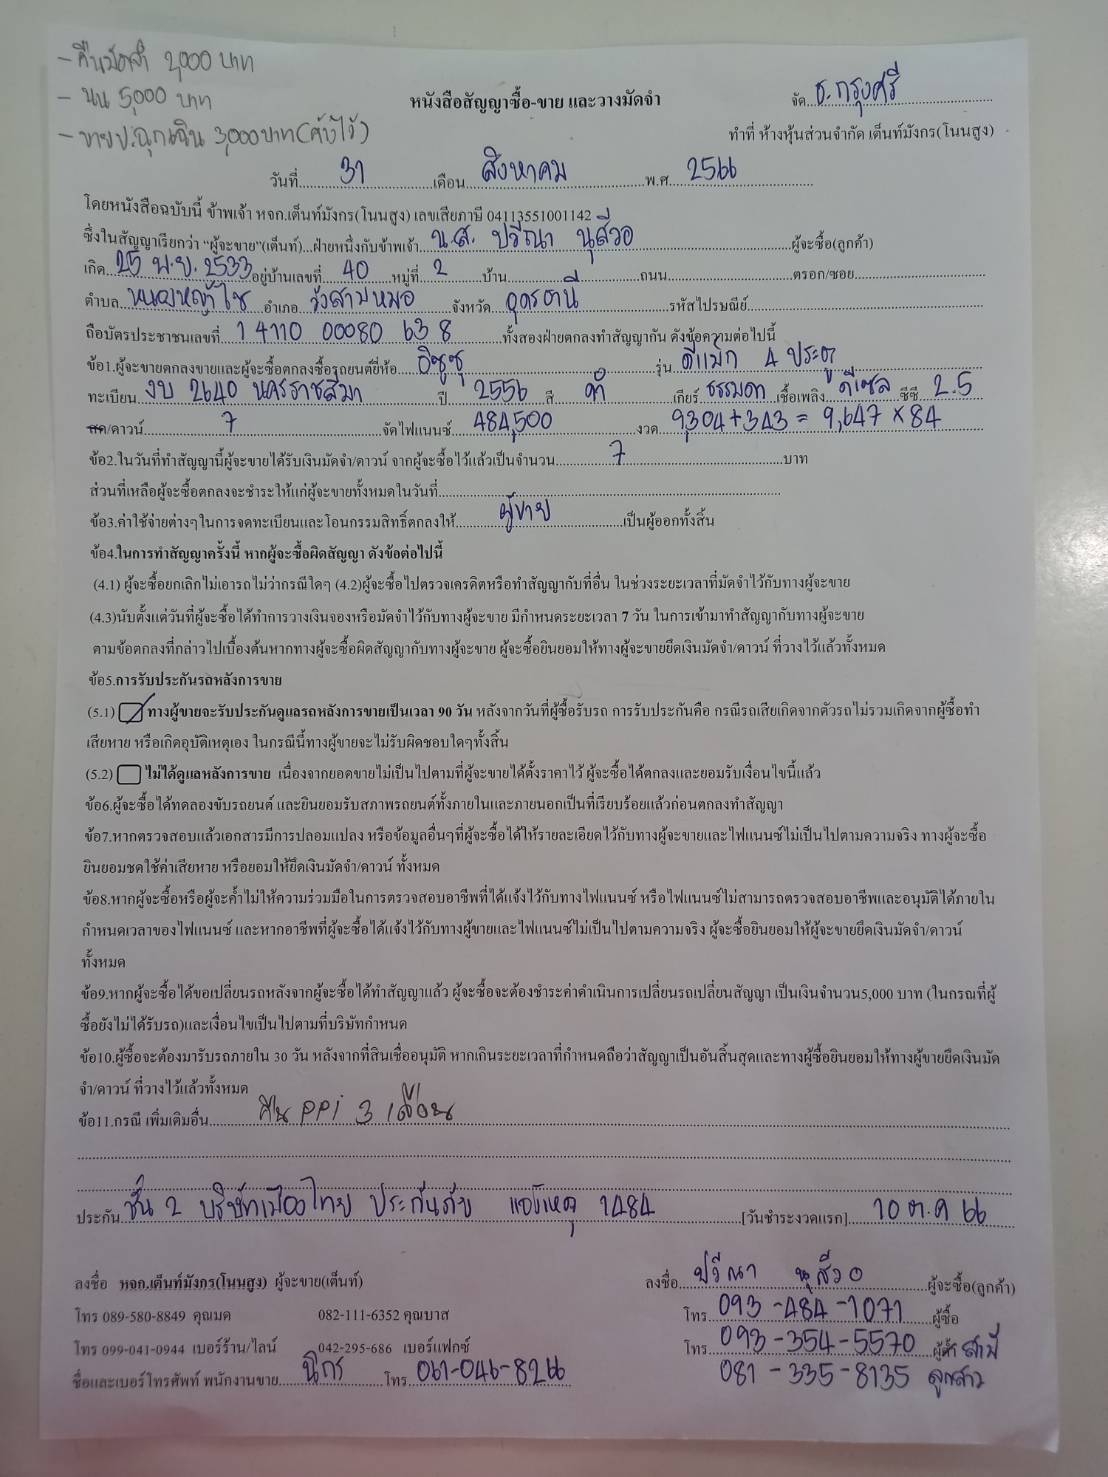 - คืนมัดจำ 2,000 บาท
- นน 5,000 บาท
- ขายป.ฉุกเฉิน 3,000 บาท (ค้างไว้)
หนังสือสัญญาซื้อ-ขาย และวางมัดจำ
จัด ธ.กรุงศรี
ทำที่ ห้างหุ้นส่วนจำกัด เต็นท์มังกร(โนนสูง)
วันที่ 31 เดือน สิงหาคม พ.ศ. 2566
โดยหนังสือฉบับนี้ ข้าพเจ้า หจก.เต็นท์มังกร(โนนสูง) เลขเสียภาษี 04113551001142
ซึ่งในสัญญาเรียกว่า “ผู้จะขาย”(เต็นท์)...ฝ่ายหนึ่งกับข้าพเจ้า น.ส. ปวีณา นุสีวอ ผู้จะซื้อ(ลูกค้า)
เกิด 25 พ.ย. 2533 อยู่บ้านเลขที่ 40 หมู่ที่ 2 บ้าน ถนน ตรอก/ซอย
ตำบล หนองหญ้าไซ อำเภอ วังสามหมอ จังหวัด อุดรธานี รหัสไปรษณีย์
ถือบัตรประชาชนเลขที่ 1 4110 00080 63 8 ทั้งสองฝ่ายตกลงทำสัญญากัน ดังข้อความต่อไปนี้
ข้อ1.ผู้จะขายตกลงขายและผู้จะซื้อตกลงซื้อรถยนต์ยี่ห้อ อีซูซุ รุ่น ดีแม็ก 4 ประตู
ทะเบียน งบ 2640 นครราชสีมา ปี 2556 สี ดำ เกียร์ ธรรมดา เชื้อเพลิง ดีเซล ซีซี 2.5
สด/ดาวน์ 7 จัดไฟแนนซ์ 484,500 งวด 9,304+343 = 9,647 x 84
ข้อ2.ในวันที่ทำสัญญานี้ผู้จะขายได้รับเงินมัดจำ/ดาวน์ จากผู้จะซื้อไว้แล้วเป็นจำนวน 7 บาท
ส่วนที่เหลือผู้จะซื้อตกลงจะชำระให้แก่ผู้จะขายทั้งหมดในวันที่
ข้อ3.ค่าใช้จ่ายต่างๆในการจดทะเบียนและโอนกรรมสิทธิ์ตกลงให้ ผู้ขาย เป็นผู้ออกทั้งสิ้น
ข้อ4.ในการทำสัญญาครั้งนี้ หากผู้จะซื้อผิดสัญญา ดังข้อต่อไปนี้
(4.1) ผู้จะซื้อยกเลิกไม่เอารถไม่ว่ากรณีใดๆ (4.2)ผู้จะซื้อไปตรวจเครดิตหรือทำสัญญากับที่อื่น ในช่วงระยะเวลาที่มัดจำไว้กับทางผู้จะขาย
(4.3)นับตั้งแต่วันที่ผู้จะซื้อได้ทำการวางเงินจองหรือมัดจำไว้กับทางผู้จะขาย มีกำหนดระยะเวลา 7 วัน ในการเข้ามาทำสัญญากับทางผู้จะขาย
ตามข้อตกลงที่กล่าวไปเบื้องต้นหากทางผู้จะซื้อผิดสัญญากับทางผู้จะขาย ผู้จะซื้อยินยอมให้ทางผู้จะขายยึดเงินมัดจำ/ดาวน์ ที่วางไว้แล้วทั้งหมด
ข้อ5.การรับประกันรถหลังการขาย
(5.1) ทางผู้ขายจะรับประกันดูแลรถหลังการขายเป็นเวลา 90 วัน หลังจากวันที่ผู้ซื้อรับรถ การรับประกันคือ กรณีรถเสียเกิดจากตัวรถไม่รวมเกิดจากผู้ซื้อทำ
เสียหาย หรือเกิดอุบัติเหตุเอง ในกรณีนี้ทางผู้ขายจะไม่รับผิดชอบใดๆทั้งสิ้น
(5.2) ไม่ได้ดูแลหลังการขาย เนื่องจากยอดขายไม่เป็นไปตามที่ผู้จะขายได้ตั้งราคาไว้ ผู้จะซื้อได้ตกลงและยอมรับเงื่อนไขนี้แล้ว
ข้อ6.ผู้จะซื้อได้ทดลองขับรถยนต์ และยินยอมรับสภาพรถยนต์ทั้งภายในและภายนอกเป็นที่เรียบร้อยแล้วก่อนตกลงทำสัญญา
ข้อ7.หากตรวจสอบแล้วเอกสารมีการปลอมแปลง หรือข้อมูลอื่นๆที่ผู้จะซื้อได้ให้รายละเอียดไว้กับทางผู้จะขายและไฟแนนซ์ไม่เป็นไปตามความจริง ทางผู้จะซื้อ
ยินยอมชดใช้ค่าเสียหาย หรือยอมให้ยึดเงินมัดจำ/ดาวน์ ทั้งหมด
ข้อ8.หากผู้จะซื้อหรือผู้จะค้ำไม่ให้ความร่วมมือในการตรวจสอบอาชีพที่ได้แจ้งไว้กับทางไฟแนนซ์ หรือไฟแนนซ์ไม่สามารถตรวจสอบอาชีพและอนุมัติได้ภายใน
กำหนดเวลาของไฟแนนซ์ และหากอาชีพที่ผู้จะซื้อได้แจ้งไว้กับทางผู้ขายและไฟแนนซ์ไม่เป็นไปตามความจริง ผู้จะซื้อยินยอมให้ผู้จะขายยึดเงินมัดจำ/ดาวน์
ทั้งหมด
ข้อ9.หากผู้จะซื้อได้ขอเปลี่ยนรถหลังจากผู้จะซื้อได้ทำสัญญาแล้ว ผู้จะซื้อจะต้องชำระค่าดำเนินการเปลี่ยนรถเปลี่ยนสัญญา เป็นเงินจำนวน5,000 บาท (ในกรณีที่ผู้
ซื้อยังไม่ได้รับรถ)และเงื่อนไขเป็นไปตามที่บริษัทกำหนด
ข้อ10.ผู้ซื้อจะต้องมารับรถภายใน 30 วัน หลังจากที่สินเชื่ออนุมัติ หากเกินระยะเวลาที่กำหนดถือว่าสัญญาเป็นอันสิ้นสุดและทางผู้ซื้อยินยอมให้ทางผู้ขายยึดเงินมัด
จำ/ดาวน์ ที่วางไว้แล้วทั้งหมด
ข้อ11.กรณี เพิ่มเติมอื่น คืน PPI 3 เดือน
ประกัน ชั้น 2 บริษัทเมืองไทย ประกันภัย แจ้งเหตุ 1484 [วันชำระงวดแรก] 10 ต.ค 66
ลงชื่อ หจก.เต็นท์มังกร(โนนสูง) ผู้จะขาย(เต็นท์)
ลงชื่อ ปวีณา นุสีวอ ผู้จะซื้อ(ลูกค้า)
โทร 089-580-8849 คุณมด 082-111-6352 คุณบาส
โทร 093-484-1071 ผู้ซื้อ
โทร 099-041-0944 เบอร์ร้าน/ไลน์ 042-295-686 เบอร์แฟกซ์
โทร 093-354-5570 ผู้ค้ำ สามี
ชื่อและเบอร์โทรศัพท์ พนักงานขาย นิกร โทร 061-046-8266
081-335-8135 ลูกสาว